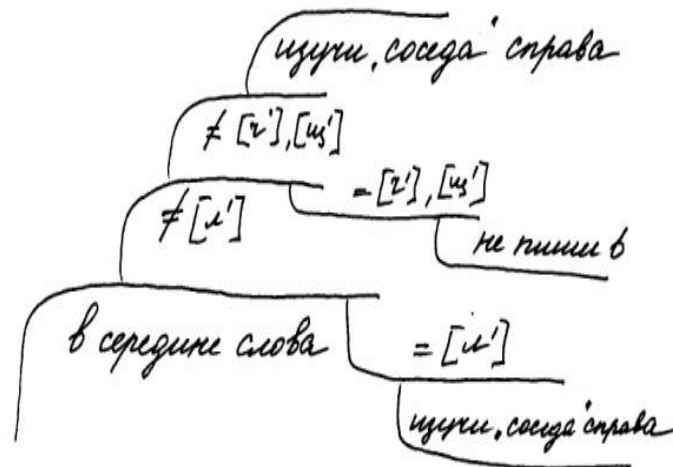 изучи „соседа" справа
≠ [ч'], [щ']
≠ [л']
= [ч'], [щ']
не пиши ь
в середине слова
= [л']
изучи „соседа" справа